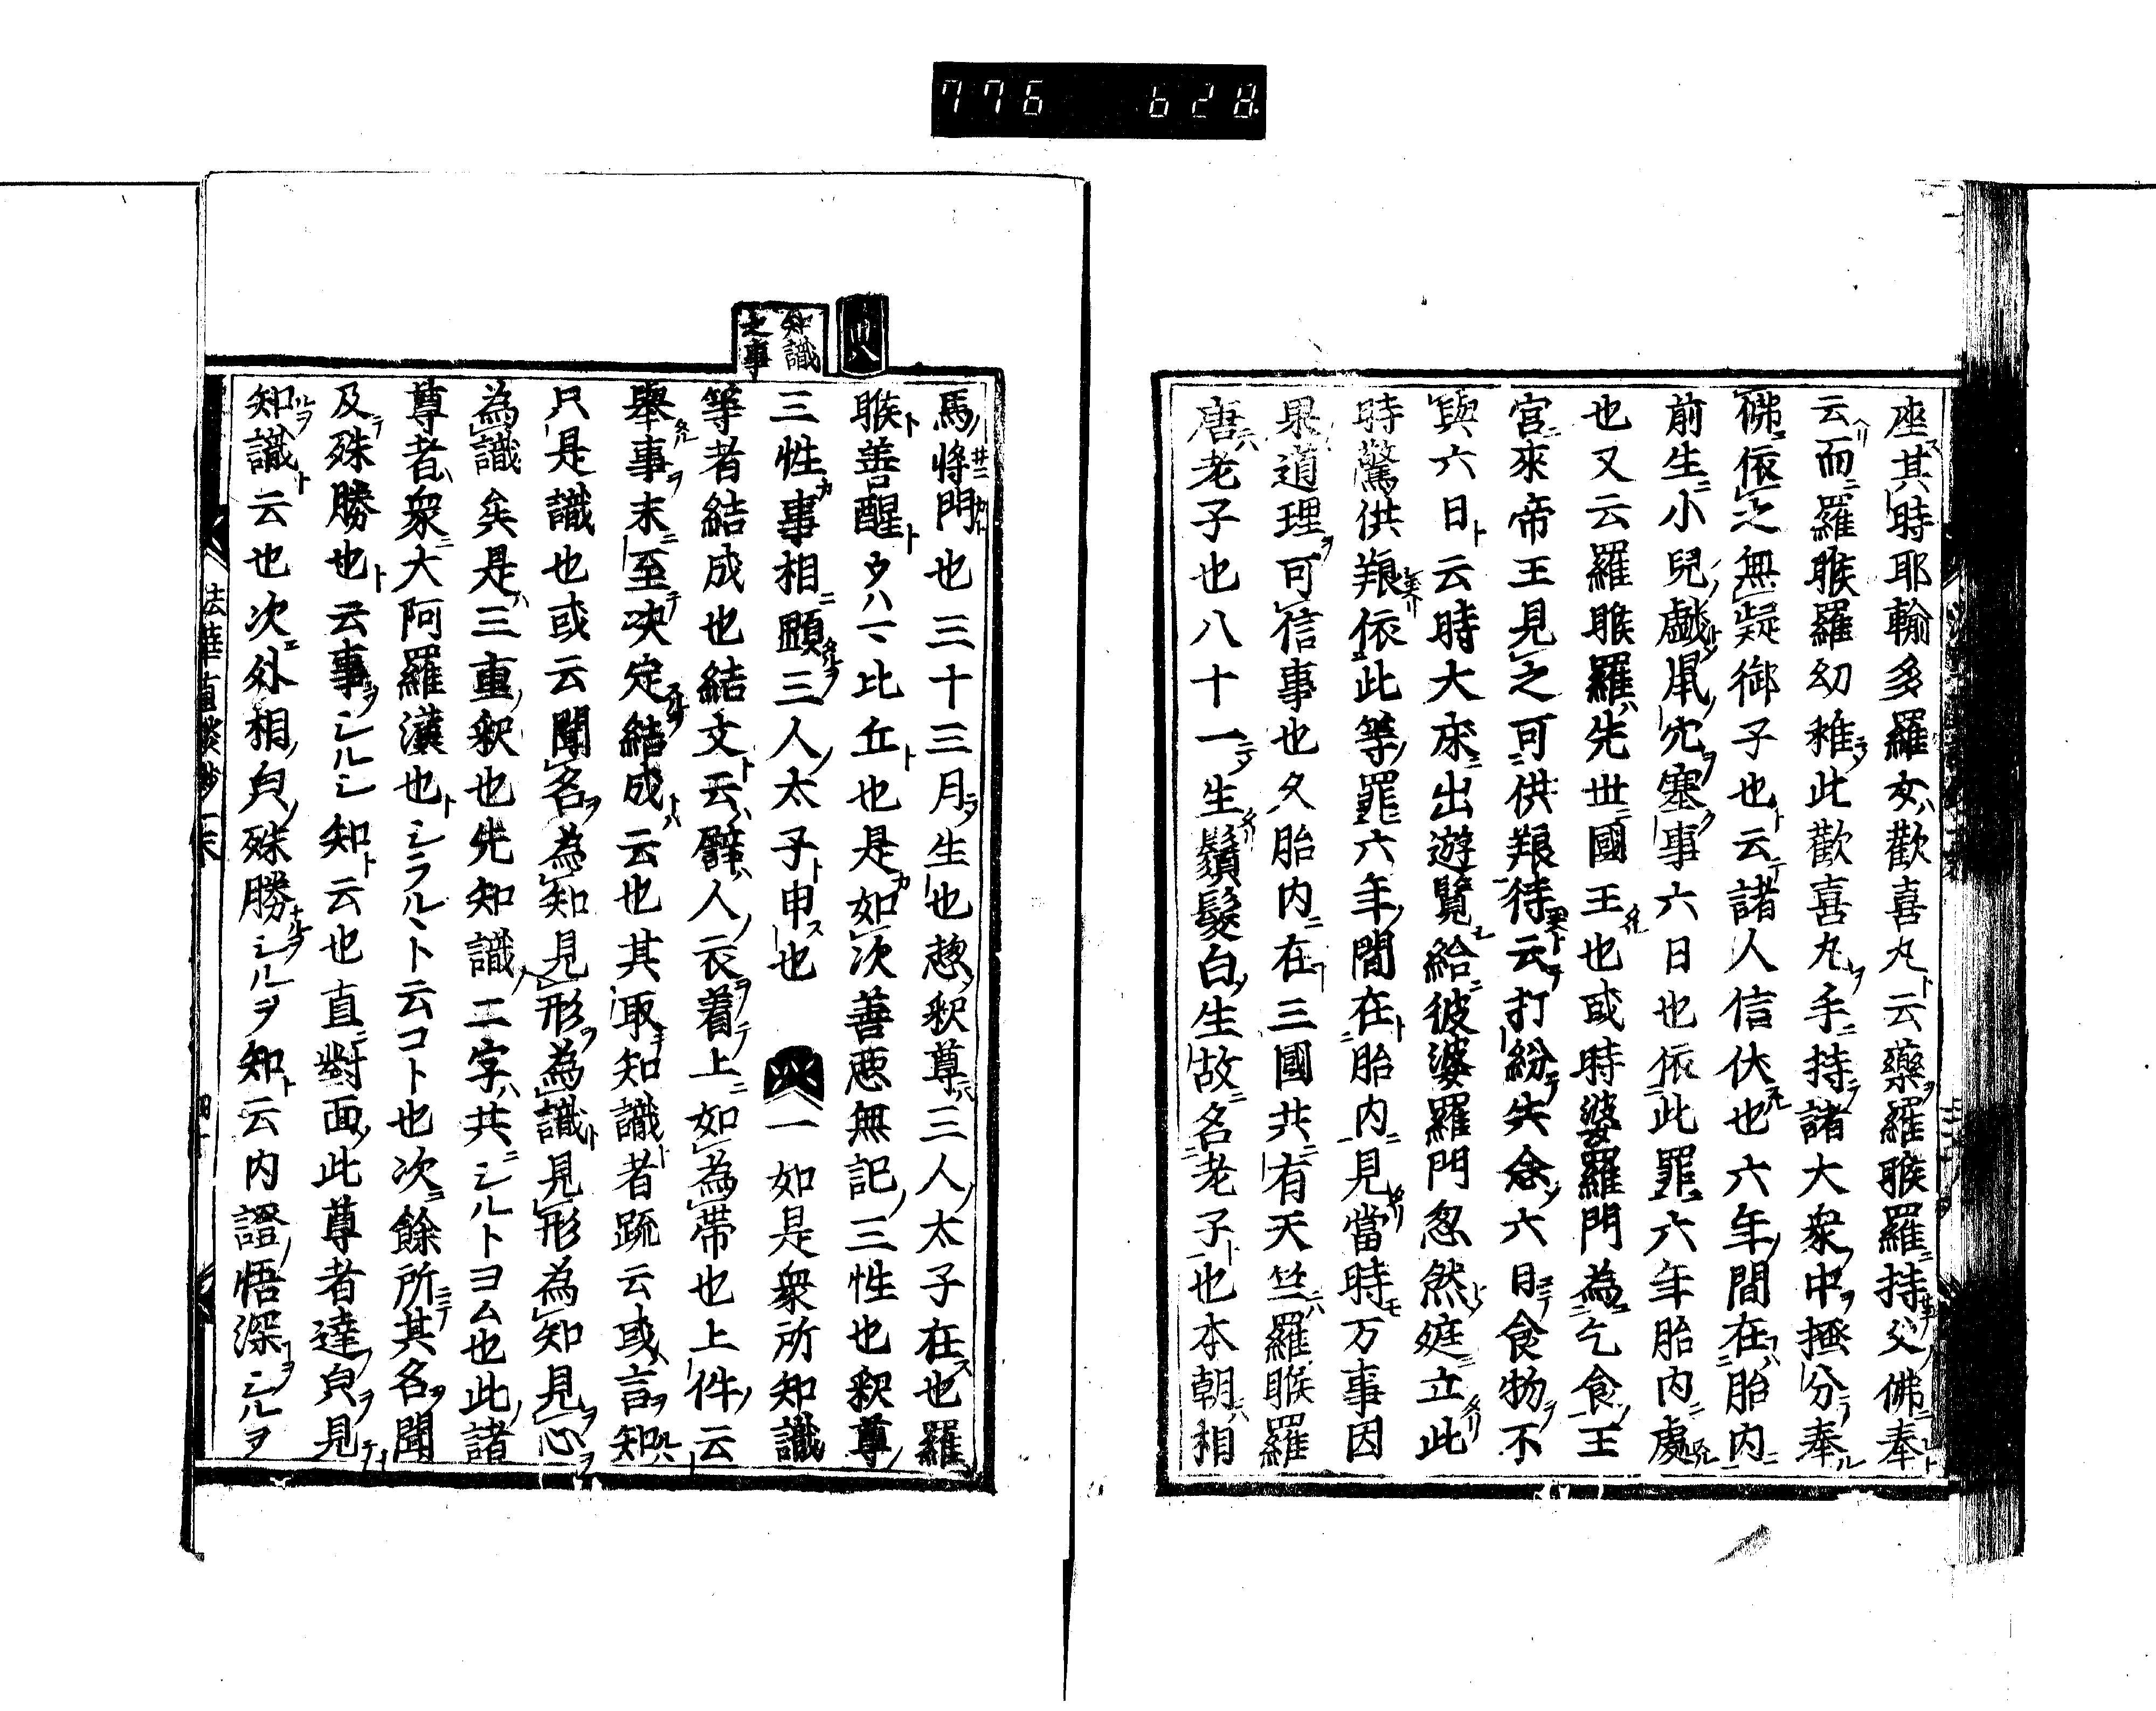 776 628
座其時耶輸多羅女歡喜丸云藥羅睺羅持父佛奉
云而羅睺羅幼稚此歡喜丸手持諸大衆中掻分奉
佛依之無疑御子也云諸人信伏也六年間在胎内
前生小兒戯鼡穴塞事六日也依此罪六年胎内處
也又云羅睺羅先世國王也或時婆羅門為乞食王
宮來帝王見之可供粮待云打紛失念六日食物不
與六日云時大王出遊覽給彼婆羅門忽然庭立此
時驚供粮依此等罪六年間在胎内見當時万事因
果道理可信事也又胎内在三國共有天竺羅睺羅
唐老子也八十一生鬚髮白生故名老子也本朝相
馬將門也三十三月生也惣釈尊三人太子在也羅
睺善醒ウハ丶比丘也是如次善悪無記三性也釈尊
三性事相顕三人太子申也 一如是衆所知識
等者結成也結文云譬人衣着上如為帯也上件云
舉事末至決定結成云也其取知識者疏云或言知
只是識也或云聞名為知見形為識見形為知見心
為識矣是三重釈也先知識二字共シルトヨム也此諸
尊者衆大阿羅漢也シラルヽト云コト也次餘所其名聞
及殊勝也云事シルシ知云也直對面此尊者達皃見
知識云也次外相皃殊勝シルヲ知云内證悟深シルヲ
知識之事
法華直談鈔一末